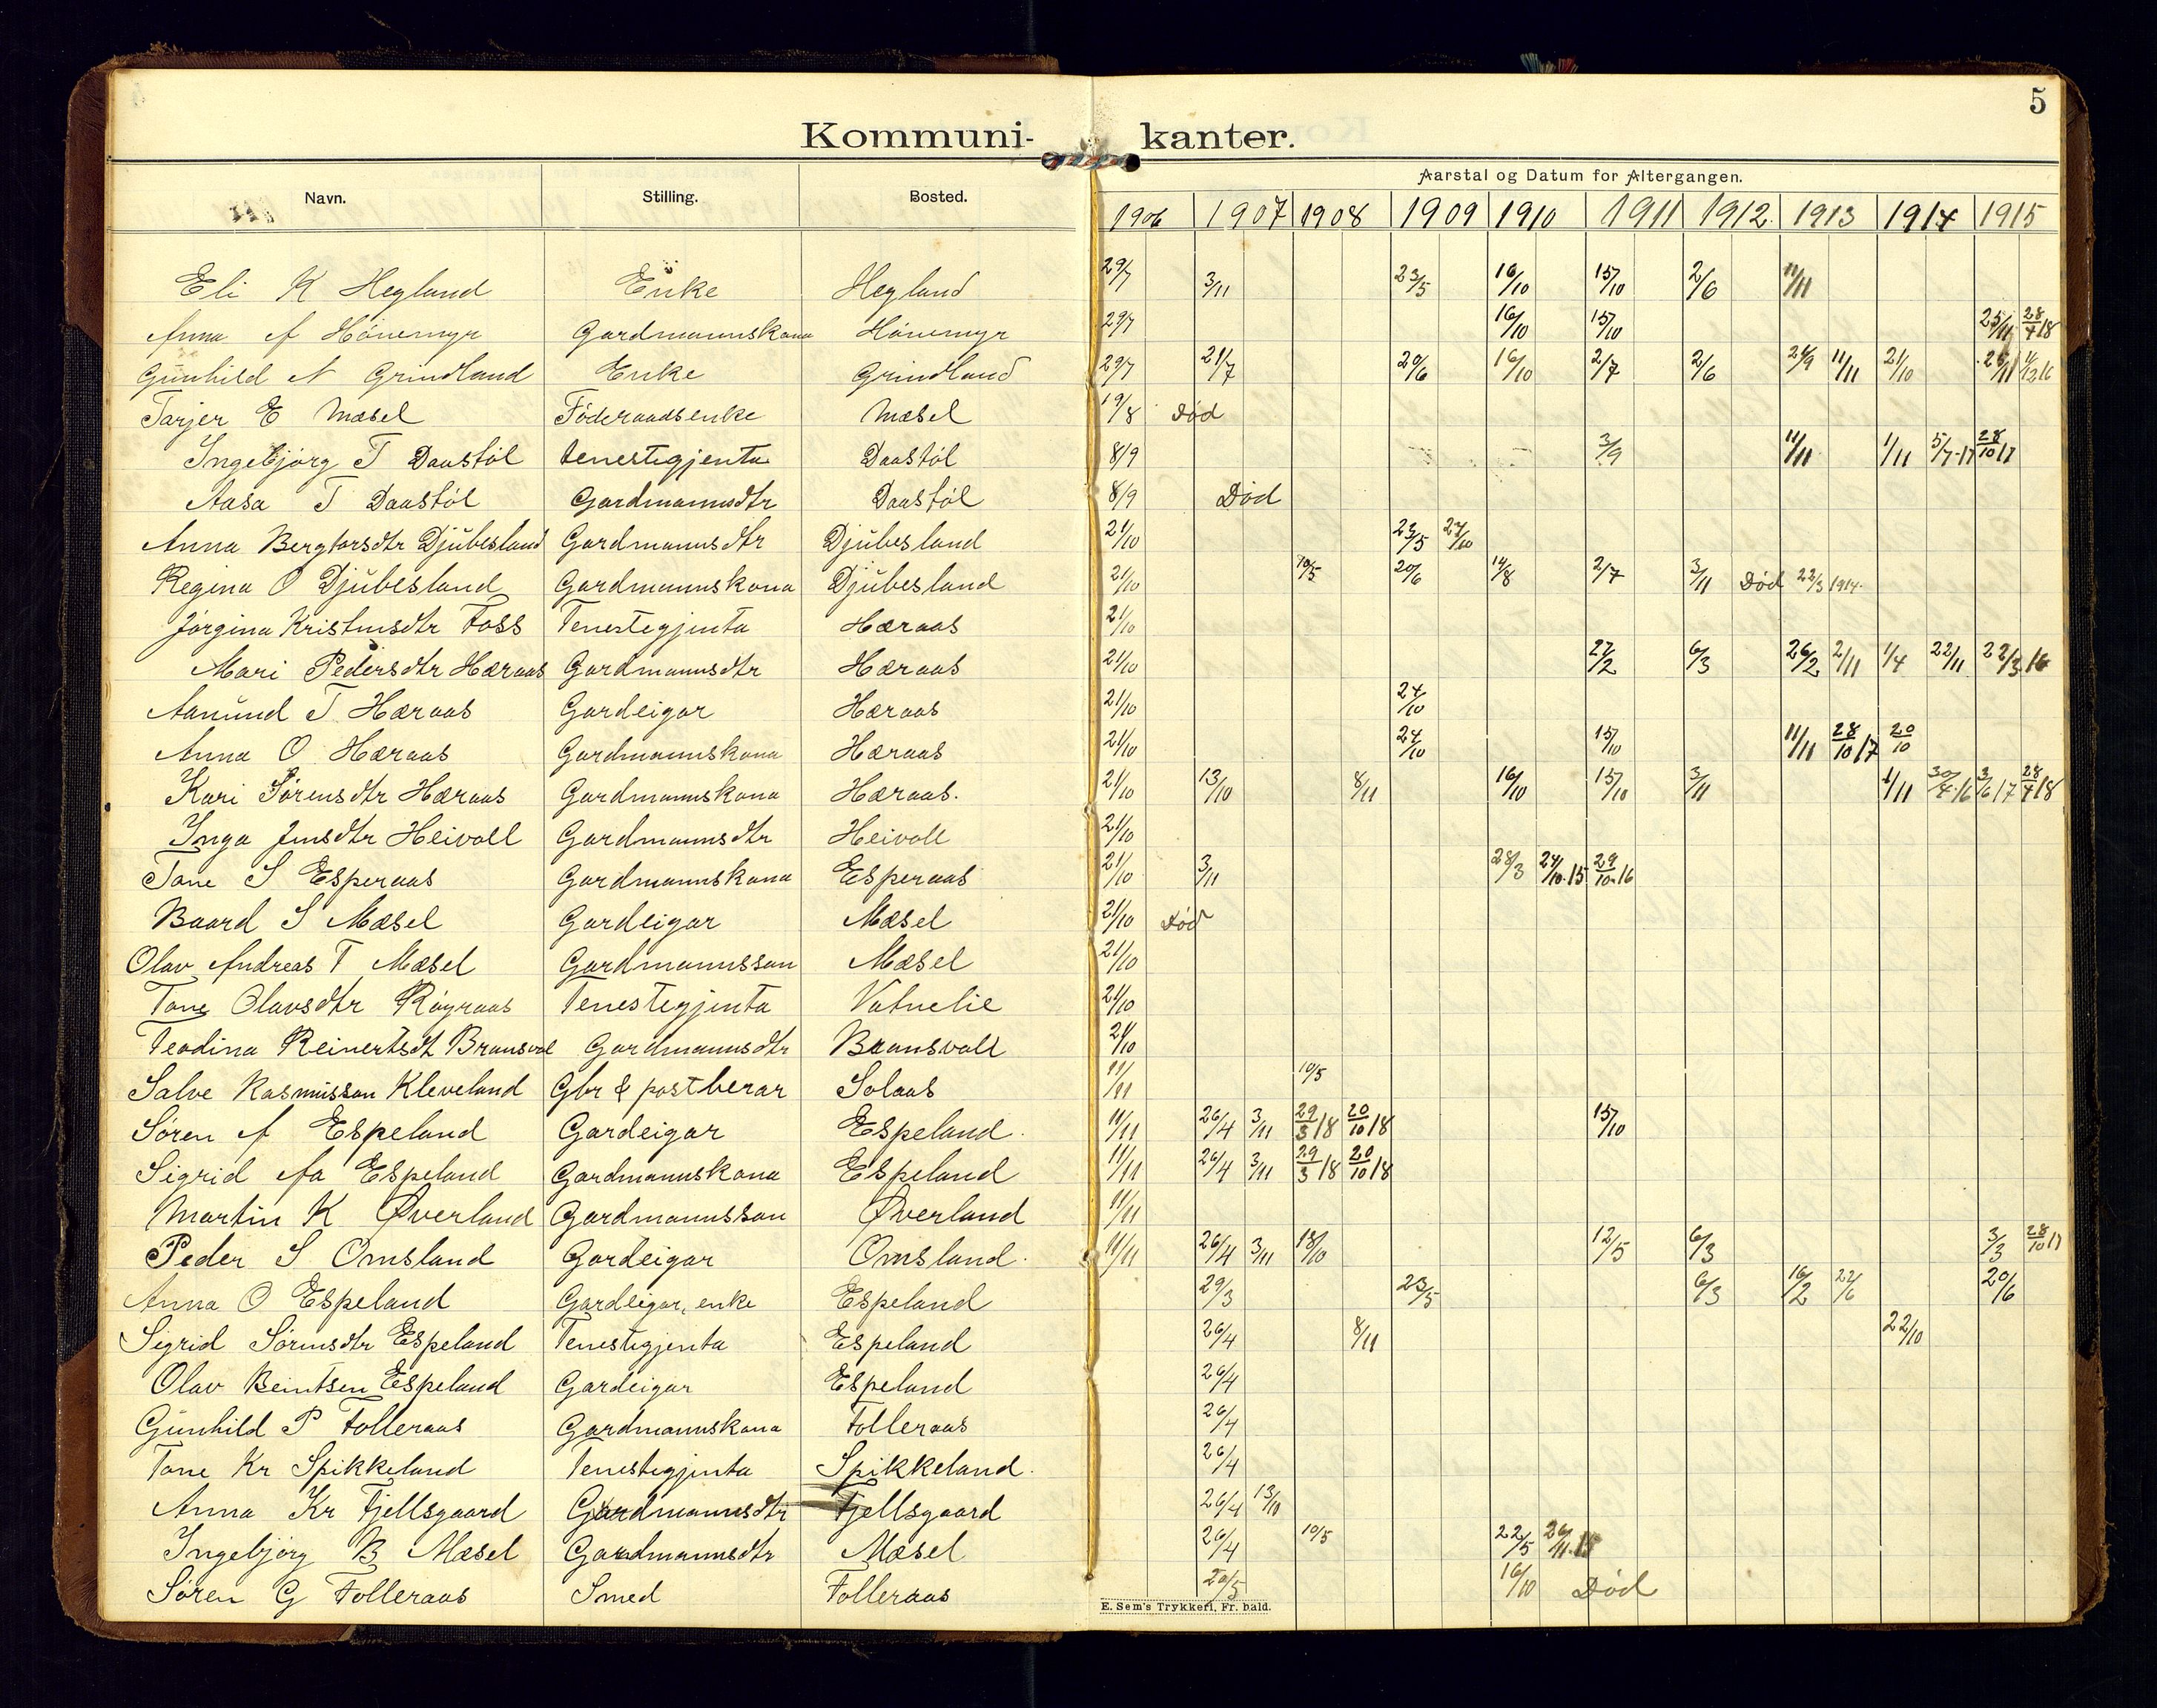 5
Kommuni- kanter.
Navn. Stilling. Bosted. Aarstal og Datum for Altergangen.
1906 1907 1908 1909 1910 1911 1912 1913 1914 1915
Eli K Hegland Enke Hegland 29/7 3/11 23/5 16/10 15/10 2/6 11/11
Anna A Hönemyr Gardmannskona Hönemyr 29/7 16/10 15/10 25/11 28/4 18
Gŭnhild N Grindland Enke Grindland 29/7 21/7 20/6 16/10 2/7 2/6 29/9 11/11 21/10 25/11
Tarjer E Mæsel Föderaadsenke Mæsel 19/8 död
Ingebjörg T Daastöl tenestegjenta Daastöl 8/9 3/9 11/11 1/11 5/7-17 28/10 17
Aasa T Daastöl Gardmannsdtr Daastöl 8/9 Död
Anna Bergtorsdtr Djŭbesland Gardmannsdtr Djŭbesland 21/10 23/5 24/10
Regina O Djŭbesland Gardmannskona Djŭbesland 21/10 10/5 20/6 14/8 2/7 3/11 Död 22/3 1914.
Jörgina Kristensdtr Foss Tenestegjenta Hæraas 21/10
Mari Pedersdtr Hæraas Gardmannsdtr Hæraas 21/10 27/2 6/3 26/2 2/11 1/4 22/11 22/3 16
Aanŭnd T Hæraas Gardeigar Hæraas 21/10 24/10
Anna O Hæraas Gardmannskona Hæraas 21/10 24/10 15/10 11/11 28/10 17 20/10
Kari Sörensdtr Hæraas Gardmannskona Hæraas. 21/10 13/10 8/11 16/10 15/10 3/11 1/11 30/4.16 3/6 17 28/4 18
Inga Jensdtr Heivoll Gardmannsdtr Heivoll 21/10
Tone S Esperaas Gardmannskona Esperaas 21/10 3/11 28/3 24/10.15 29/10.16
Baard S Mæsel Gardeigar Mæsel 21/10 död
Olav Andreas T Mæsel Gardmannsson Mæsel 21/10
Tone Olavsdtr Röyraas Tenestegjenta Vatnelie 21/10
Teodina Reinertsdt Bransvol Gardmannsdtr Bransvoll 21/10
Salve Rasmŭsson Kleveland Gbr & postberar Solaas 11/11 10/5
Sören A Espeland Gardeigar Espeland. 11/11 26/4 3/11 29/3 18 20/10 18 15/10
Sigrid Aa Espeland Gardmannskona Espeland 11/11 26/4 3/11 29/3 18 20/10 18
Martin K Øverland Gardmannsson Øverland 11/11
Peder S Omsland Gardeigar Omsland. 11/11 26/4 3/11 18/10 12/5 6/3 3/3 28/10 17
Anna O Espeland Gardeigar, enke Espeland 29/3 23/5 6/3 16/2 22/6 20/6
Sigrid Sörensdtr Espeland Tenestegjenta Espeland 26/4 8/11 22/10
Olav Beintsen Espeland Gardeigar Espeland 26/4
Gŭnhild P Folleraas Gardmannskona Folleraas 26/4
Tone Kr Spikkeland Tenestegjenta Spikkeland. 26/4
Anna Kr Fjellsgaard Gardmannsdtr Fjellsgaard 26/4 13/10
Ingebjörg B Mæsel Gardmannsdtr Mæsel 26/4 10/5 22/5
Sören G Folleraas Smed Folleraas 20/5 16/10 Död
E. Sem's Trykkeri, Fr. hald.